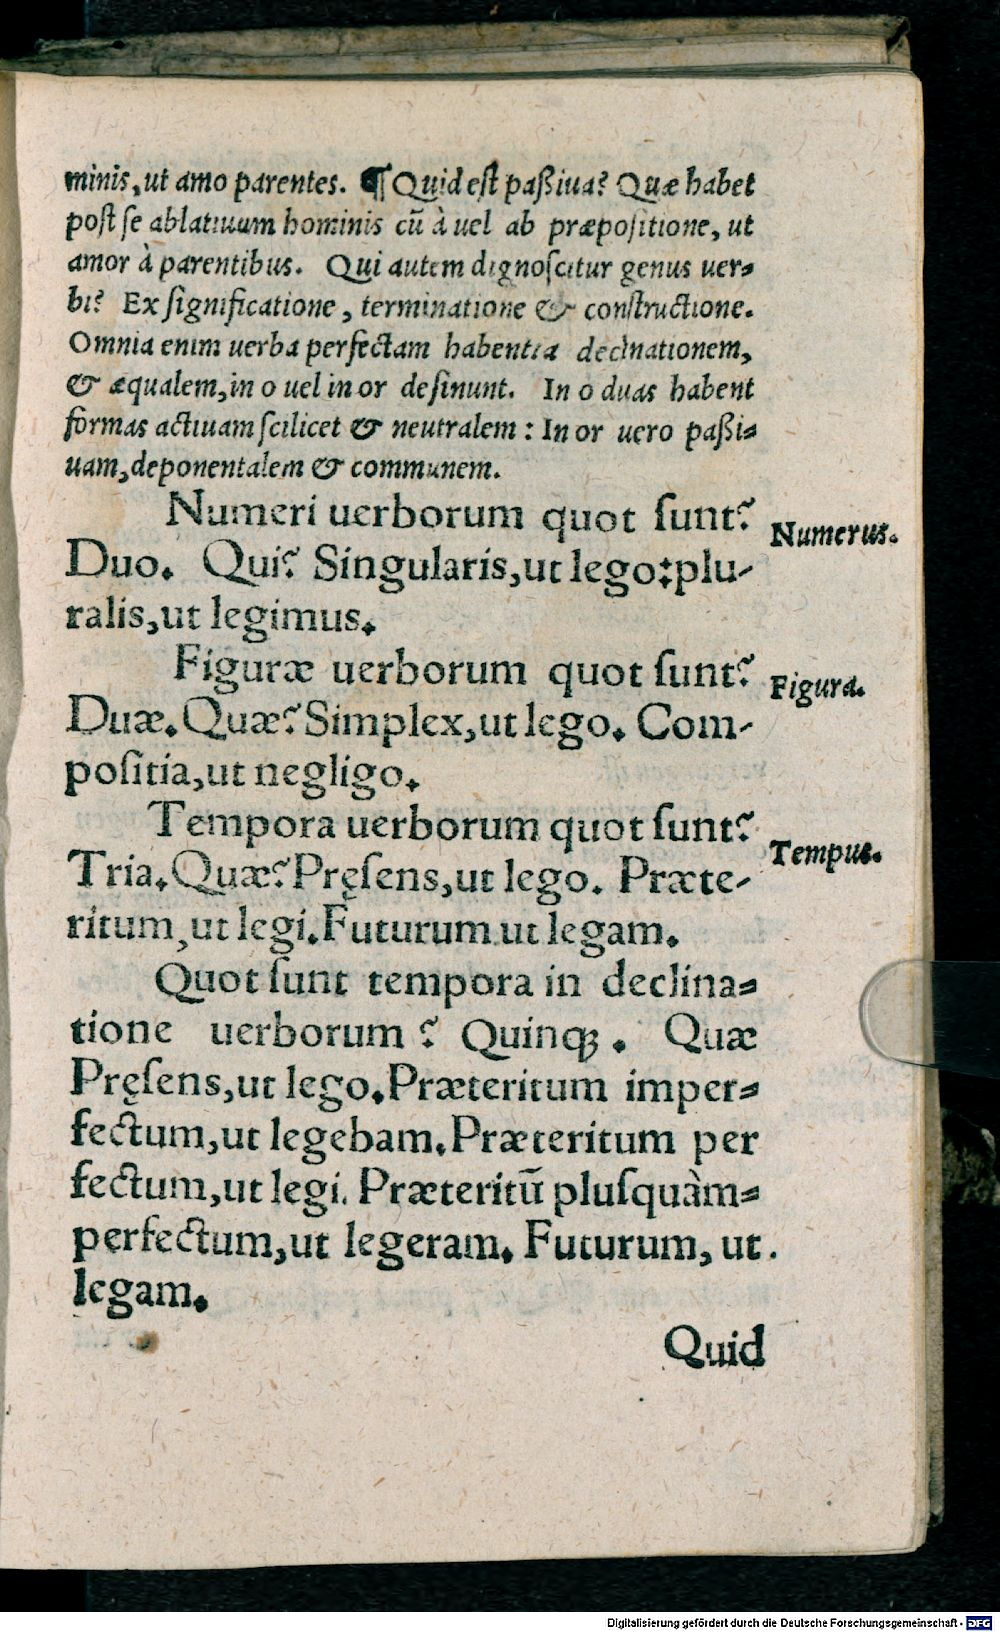 minis, ut amo parentes. ¶ Quid est paßiua? Quæ habet
post se ablatiuum hominis cū à uel ab præpositione, ut
amor à parentibus. Qui autem dignoscitur genus uer⸗
bi? Ex significatione, terminatione & constructione.
Omnia enim uerba perfectam habentia declinationem,
& æqualem, in o uel in or desinunt. In o duas habent
formas actiuam scilicet & neutralem : In or uero paßi⸗
uam, deponentalem & communem.
Numeri uerborum quot sunt?
Numerus.
Duo. Qui? Singularis, ut lego: plu-
ralis, ut legimus.
Figuræ uerborum quot sunt?
Figura.
Duæ. Quæ? Simplex, ut lego. Com-
positia, ut negligo.
Tempora uerborum quot sunt?
Tempus.
Tria. Quæ? Pręsens, ut lego. Præte-
ritum, ut legi. Futurum ut legam.
Quot sunt tempora in declina⸗
tione uerborum ? Quinqꝫ. Quæ
Pręsens, ut lego. Præteritum imper⸗
fectum, ut legebam. Præteritum per
fectum, ut legi. Præteritū plusquàm⸗
perfectum, ut legeram. Futurum, ut.
legam.
Quid
Digitalisierung gefördert durch die Deutsche Forschungsgemeinschaft - DFG